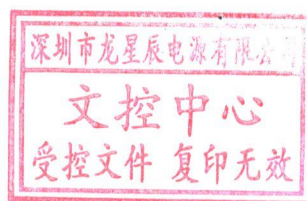 深圳市龙星辰电源有限公
文控中心
受控文件 复印无效